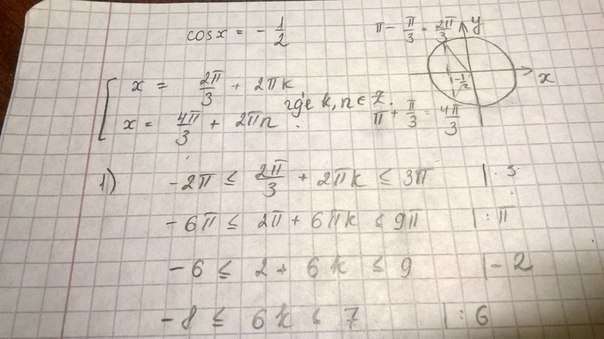 cosx = - 1/2
π - π/3 = 2π/3
y
x
-1/2
[ x = 2π/3 + 2πk
x = 4π/3 + 2πn . где k, n ∈ Z.
π + π/3 = 4π/3
1) -2π ≤ 2π/3 + 2πk ≤ 3π | · 3
-6π ≤ 2π + 6πk ≤ 9π | : π
-6 ≤ 2 + 6k ≤ 9 | - 2
-8 ≤ 6k ≤ 7 | : 6